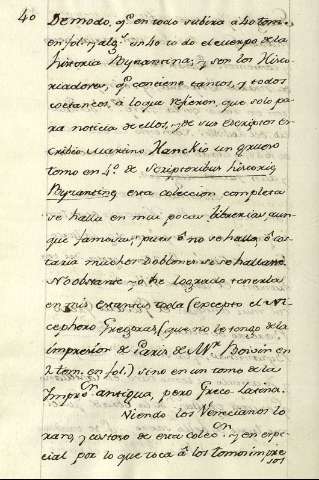 40
De modo, q̃ en todo subirà à 40 tom.s
en fol. y alg.s en 4.o todo el cuerpo de la
historia Byzantina; y son los Histo-
riadores, q̃ contiene tantos, y todos
coetaneos, à lo que refieren, que solo pa-
ra noticia de ellos, y de sus escriptos es-
cribiò Martino Hanckio un grueso
tomo en 4.o de Scriptoribus historiæ
Byzantinæ esta coleccion completa
se halla en mui pocas librerias aun-
que famosas, pues ò no se halla ò cos-
taria muchos Doblones si se hallasse.
No obstante yo he logrado tenerla
en mis estantes toda (excepto el Ni-
cephoro Gregoras (que no le tengo de la
impresion de Paris de M.r Boivin en
2 tom. en fol.) sino en un tomo de la
Impre.on antigua, pero Greco-Latina.
Viendo los Venecianos lo
raro, y costoso de esta colec.on y en espe-
cial por lo que toca à los tomos impre
sos